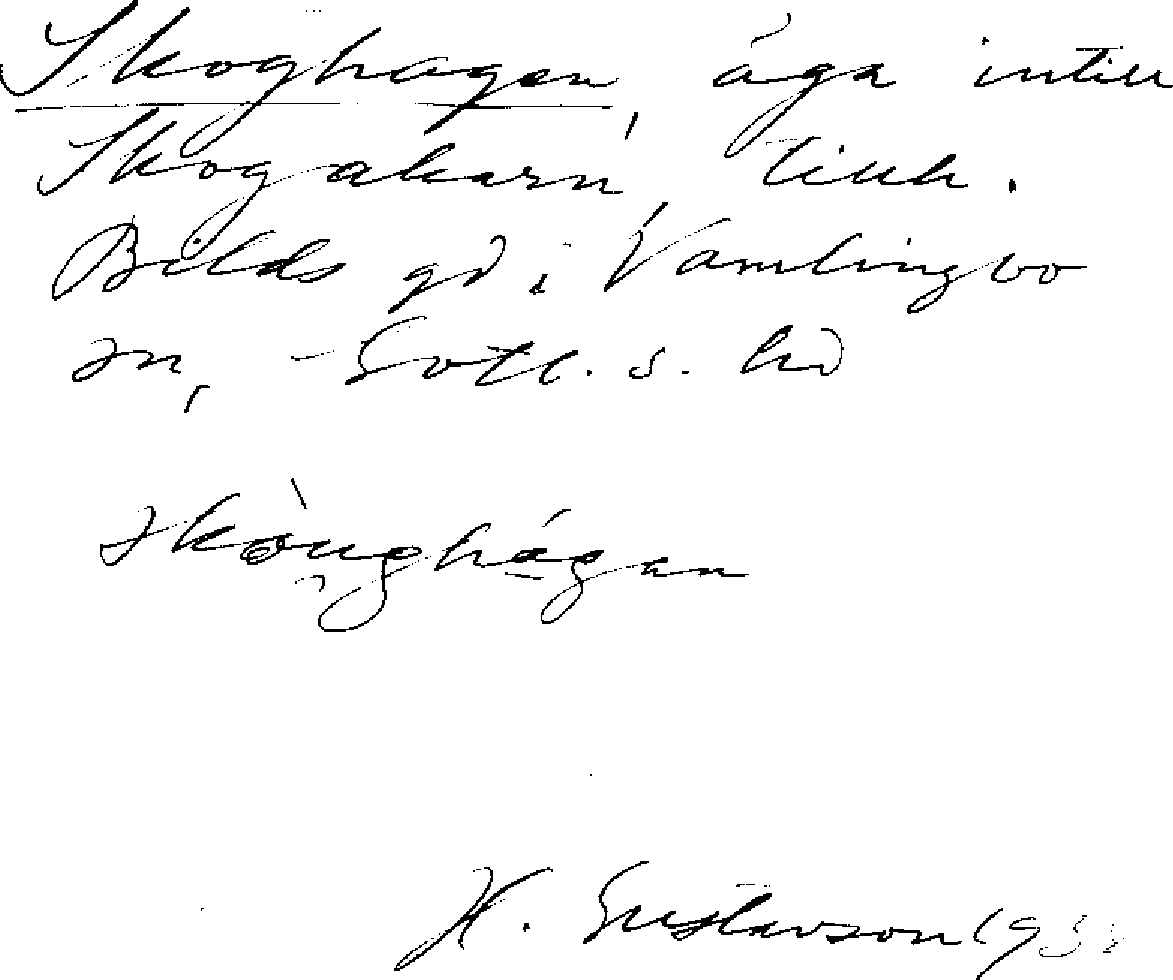 Skoghagen, äga intill
Skogakarn, tillh.
Bilds gd i Vamlingbo
sn, Gotl. s. hd
skòughágan
H. Gustavson 193